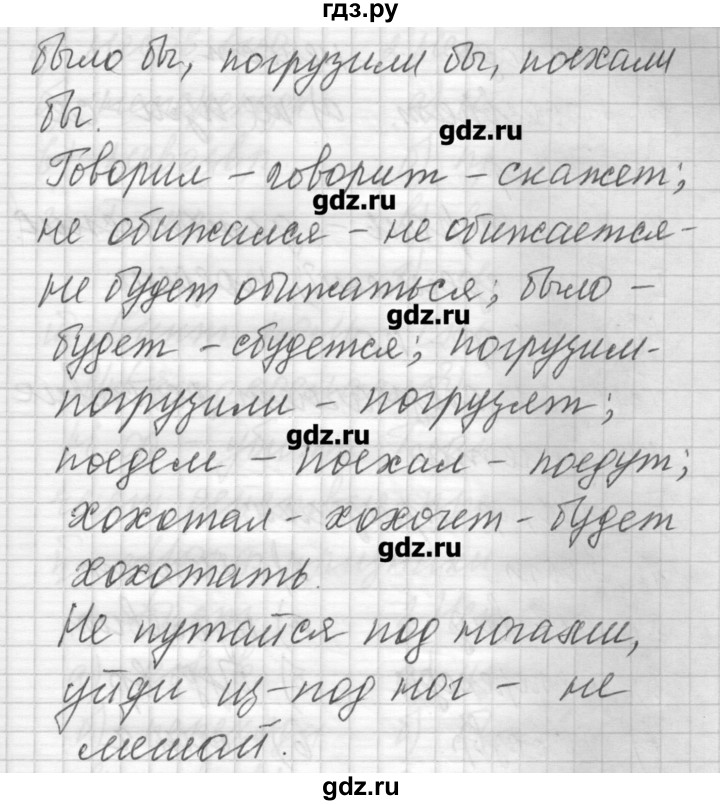 гдз.ру
было бы, погрузили бы, поехали
бы.
gdz.ru
Говорил – говорит – скажет;
gdz.ru
не обижался – не обижается –
не будет обижаться; было –
gdz.ru
будет – сбудется; погрузим –
погрузили – погрузят;
gdz.ru
поедем – поехал – поедут;
хохотал – хохочет – будет
gdz.ru
хохотать.
Не путайся под ногами,
уйди из-под ног – не
мешай.
gdz.ru